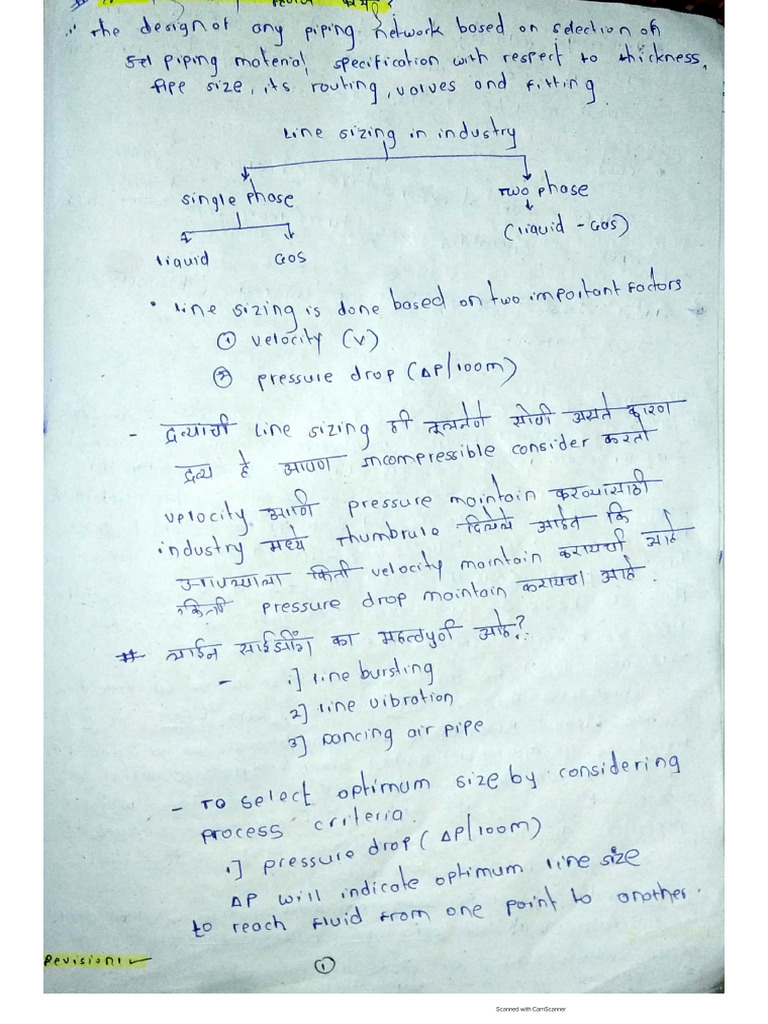 ∴ The design of any piping network based on selection of
piping material, specification with respect to thickness,
pipe size, its routing, valves and fitting.
Line sizing in industry
Single phase
Two phase
Liquid
Gas
(Liquid - Gas)
• Line sizing is done based on two important factors
① velocity (V)
② pressure drop (ΔP/100m)
- द्रव्याची Line sizing ही तुलनेने सोपी असते कारण
द्रव्य हे आपण incompressible consider करतो
velocity आणी pressure maintain करण्यासाठी
industry मध्ये Thumbrule दिलेले आहेत कि
आपल्याला किती velocity maintain करायची आहे
किती pressure drop maintain करायचा आहे.
# लाईन साईझींग का महत्वपुर्ण आहे?
- 1] Line bursting
2] Line vibration
3] Dancing air pipe
- To select optimum size by considering
process criteria.
1] pressure drop (ΔP/100m)
ΔP will indicate optimum line size
to reach fluid from one point to another.
Revision:1
①
Scanned with CamScanner